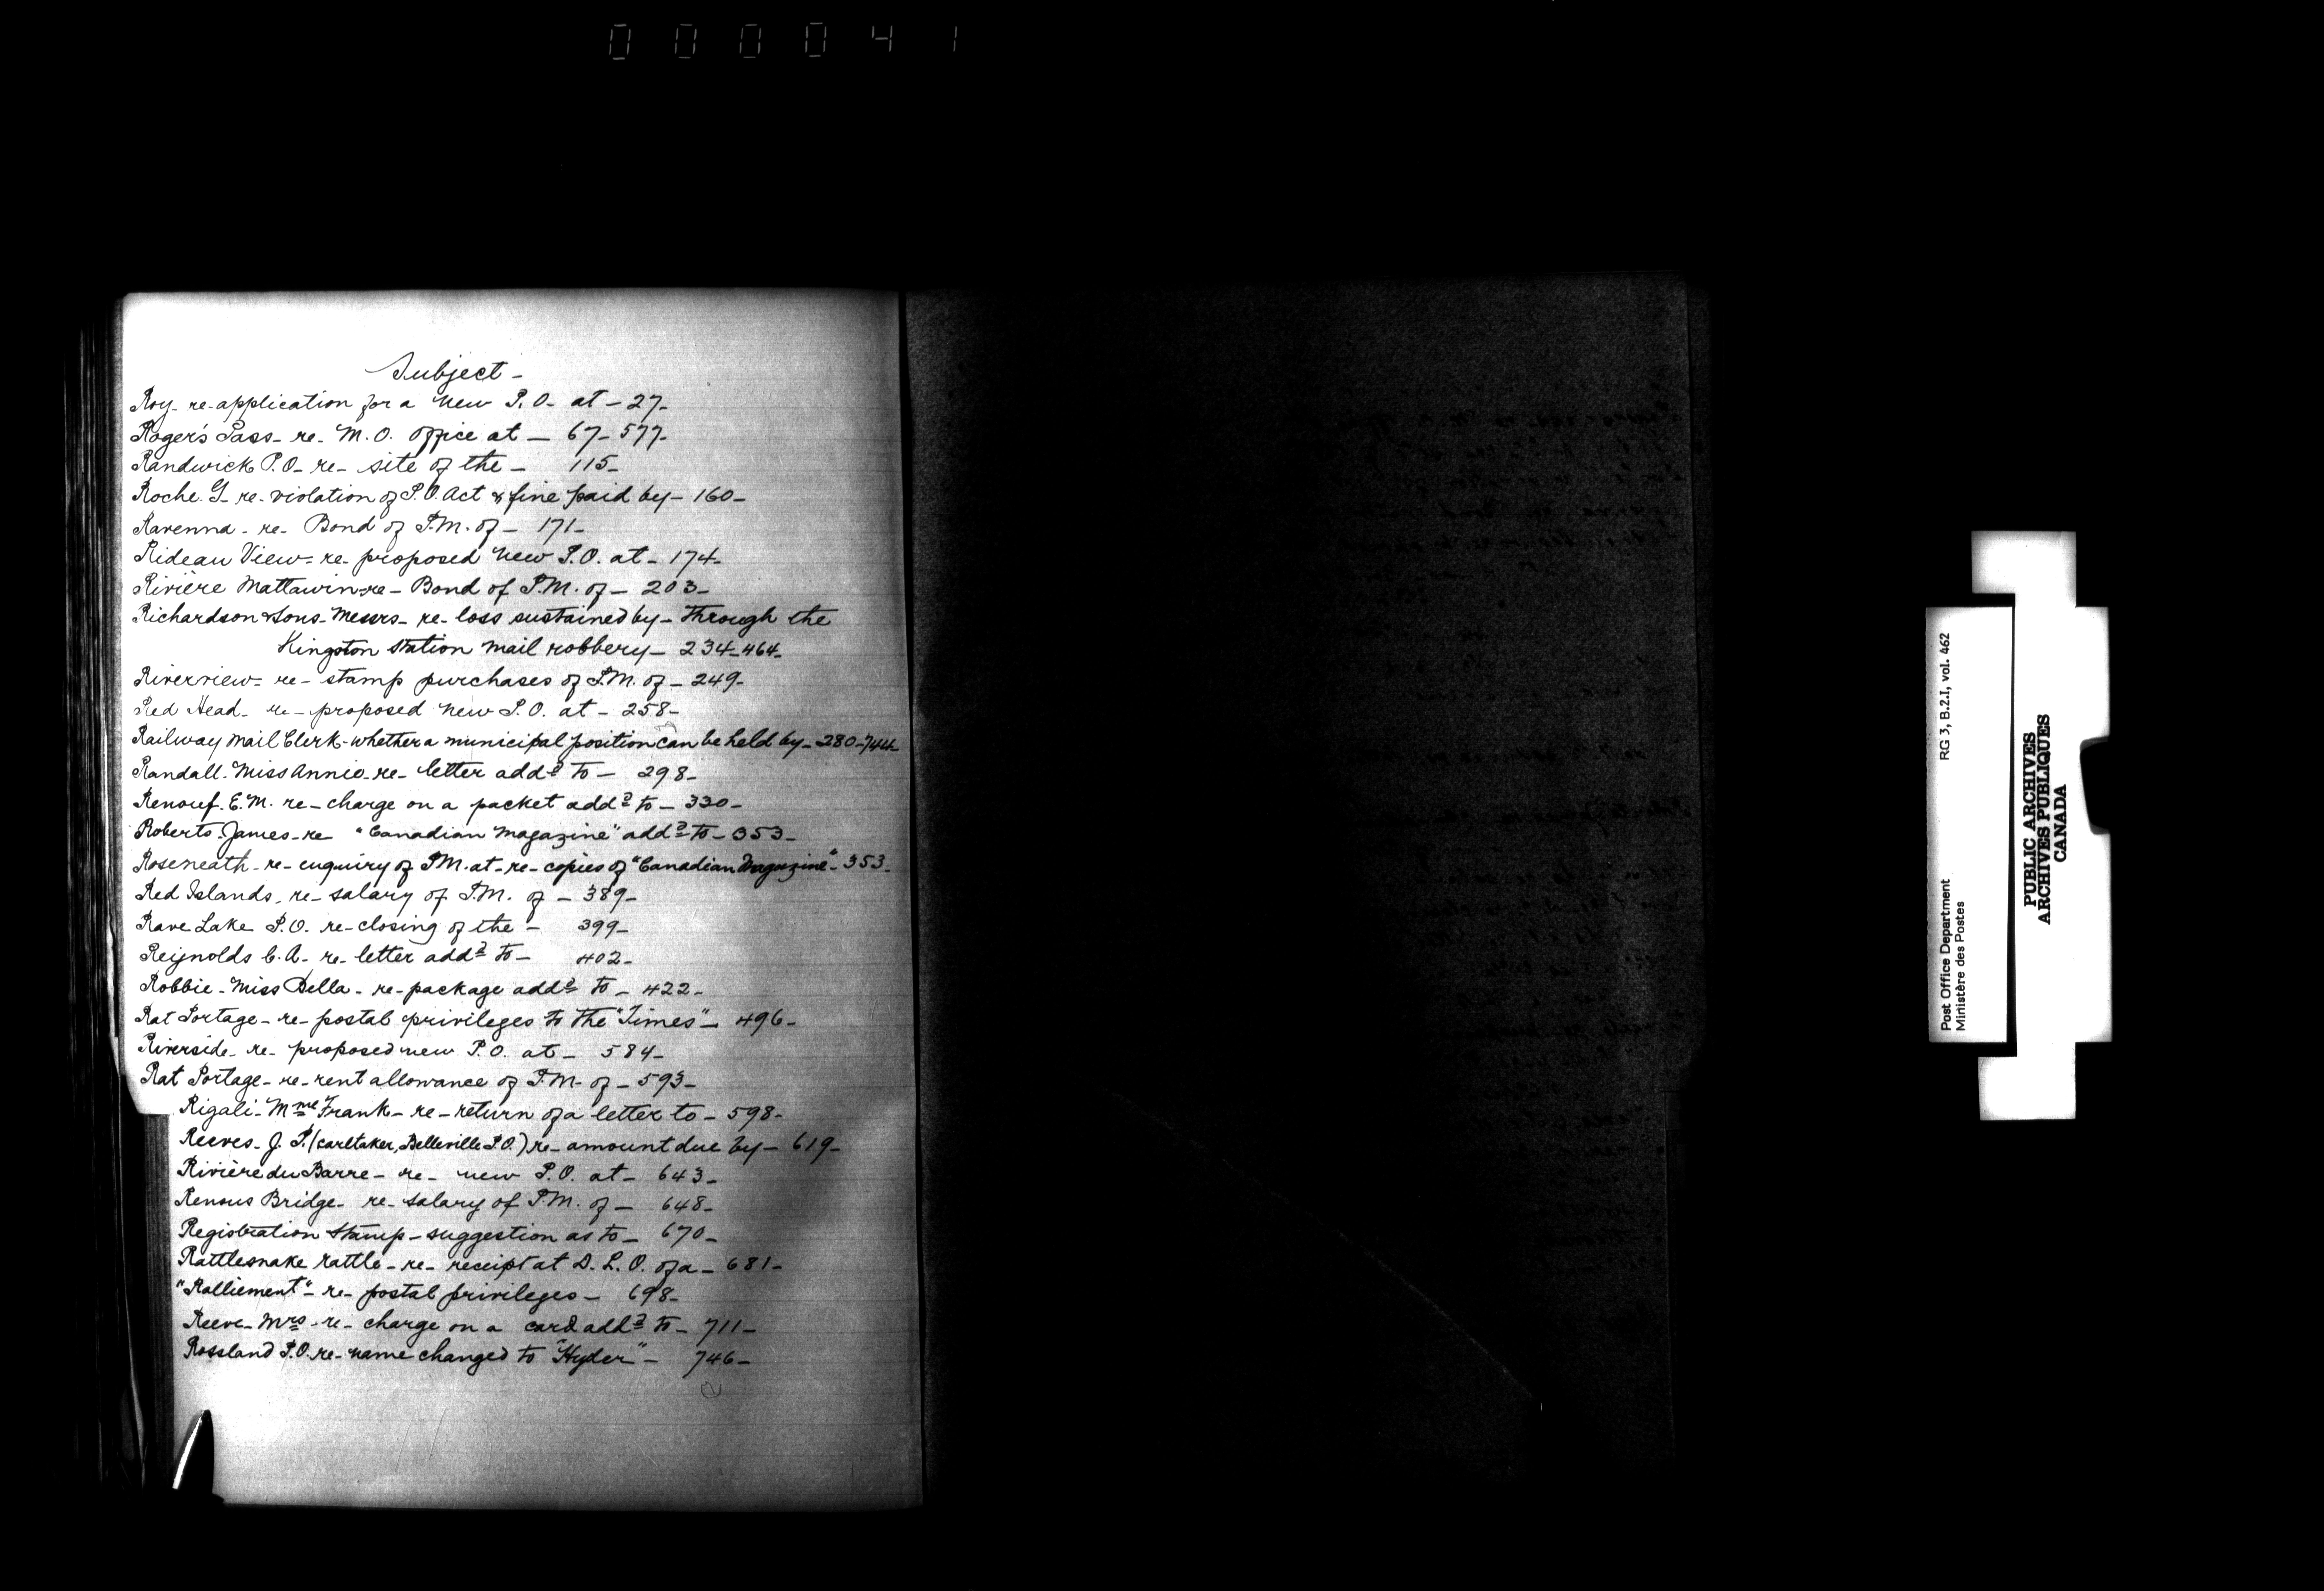 000041
Subject -
Roy - re - application for a new P.O. at - 27 -
Roger's Pass - re - M.O. office at - 67 - 577 -
Randwick P.O - re - site of the - 115 -
Roche. G - re - violation of P.O. Act & fine paid by - 160 -
Ravenna - re - Bond of P.M. of - 171 -
Rideau View - re - proposed new P.O. at - 174 -
Rivière Mattawin - re - Bond of P.M. of - 203 -
Richardson & Sons - Messrs - re - loss sustained by - through the
Kingston station mail robbery - 234 - 464 -
Riverview - re - stamp purchases of P.M. of - 249 -
Red Head - re - proposed new P.O. at - 258 -
Railway Mail Clerk - whether a municipal position can be held by - 280 - 744 -
Randall - Miss Annie - re - letter addd to - 298 -
Renouf. E.M. re - charge on a packet addd to - 330 -
Roberts - James - re "Canadian Magazine" addd to - 353 -
Roseneath - re - enquiry of P.M. at - re - copies of "Canadian Magazine" - 353 -
Red Islands - re - salary of P.M. of - 389 -
Rave Lake P.O. re - closing of the - 399 -
Reijnolds C.A - re - letter addd to - 402 -
Robbie - Miss Bella - re - package addd to - 422 -
Rat Portage - re - postal privileges to the "Times" - 496 -
Riverside - re - proposed new P.O. at - 584 -
Rat Portage - re - rent allowance of P.M. of - 593 -
Rigali - Mme Frank - re - return of a letter to - 598 -
Reeves - J. P. (caretaker, Belleville P.O.) re - amount due by - 619 -
Rivière du Barre - re - new P.O. at - 643 -
Renous Bridge - re - salary of P.M. of - 648 -
Registration Stamp - suggestion as to - 670 -
Rattlesnake rattle - re - receipt at D.L.O. of a - 681 -
"Ralliement" - re - postal privileges - 698 -
Reeve - Mrs - re - charge on a card addd to - 711 -
Rossland P.O. re - name changed to "Hyder" - 746 -
Post Office Department RG 3, B.2.I, vol. 462
Ministère des Postes
PUBLIC ARCHIVES
ARCHIVES PUBLIQUES
CANADA